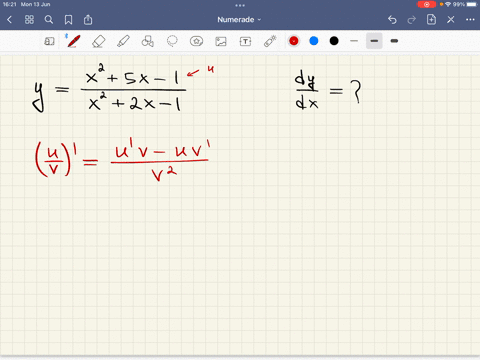 16:21 Mon 13 Jun
99%
Numerade
y = \frac{x^2 + 5x - 1}{x^2 + 2x - 1} ← u
\frac{dy}{dx} = ?
\left(\frac{u}{v}\right)' = \frac{u'v - uv'}{v^2}